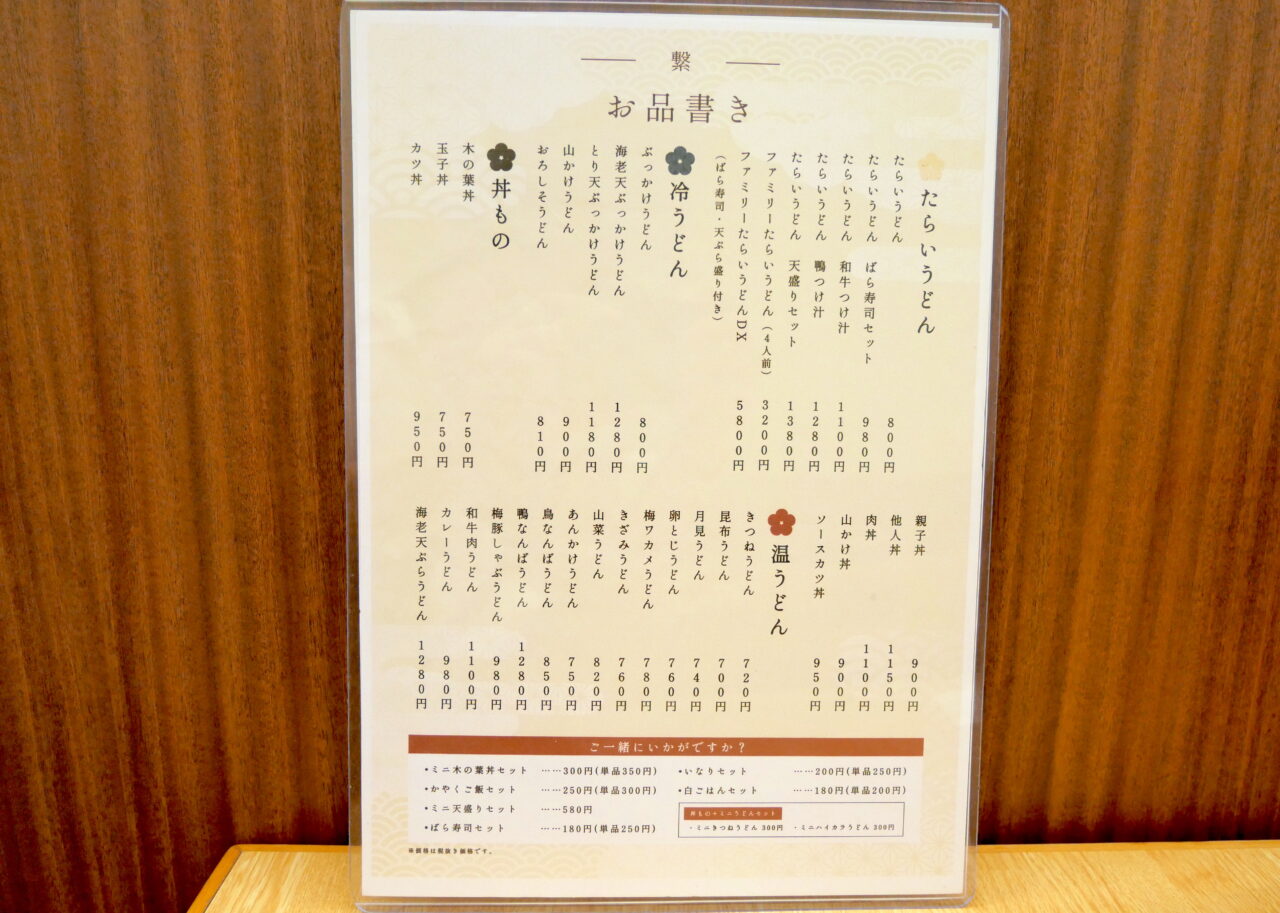 繋
お品書き
たらいうどん
たらいうどん 800円
たらいうどん ばら寿司セット 980円
たらいうどん 和牛つけ汁 1100円
たらいうどん 鴨つけ汁 1280円
たらいうどん 天盛りセット 1380円
ファミリーたらいうどん(4人前) 3200円
ファミリーたらいうどんDX 5800円
(ばら寿司・天ぷら盛り付き)
冷うどん
ぶっかけうどん 800円
海老天ぶっかけうどん 1280円
とり天ぶっかけうどん 1180円
山かけうどん 900円
おろしそうどん 810円
丼もの
木の葉丼 750円
玉子丼 750円
カツ丼 950円
親子丼 900円
他人丼 1150円
肉丼 1100円
山かけ丼 900円
ソースカツ丼 950円
温うどん
きつねうどん 720円
昆布うどん 700円
月見うどん 740円
卵とじうどん 760円
梅ワカメうどん 780円
きざみうどん 760円
山菜うどん 820円
あんかけうどん 750円
鳥なんばうどん 850円
鴨なんばうどん 1280円
梅豚しゃぶうどん 980円
和牛肉うどん 1100円
カレーうどん 980円
海老天ぷらうどん 1280円
ご一緒にいかがですか?
•ミニ木の葉丼セット ……300円(単品350円)
•かやくご飯セット ……250円(単品300円)
•ミニ天盛りセット ……580円
•ばら寿司セット ……180円(単品250円)
•いなりセット ……200円(単品250円)
•白ごはんセット ……180円(単品200円)
丼もの+ミニうどんセット
・ミニきつねうどん 300円 ・ミニハイカラうどん 300円
※価格は税抜き価格です。